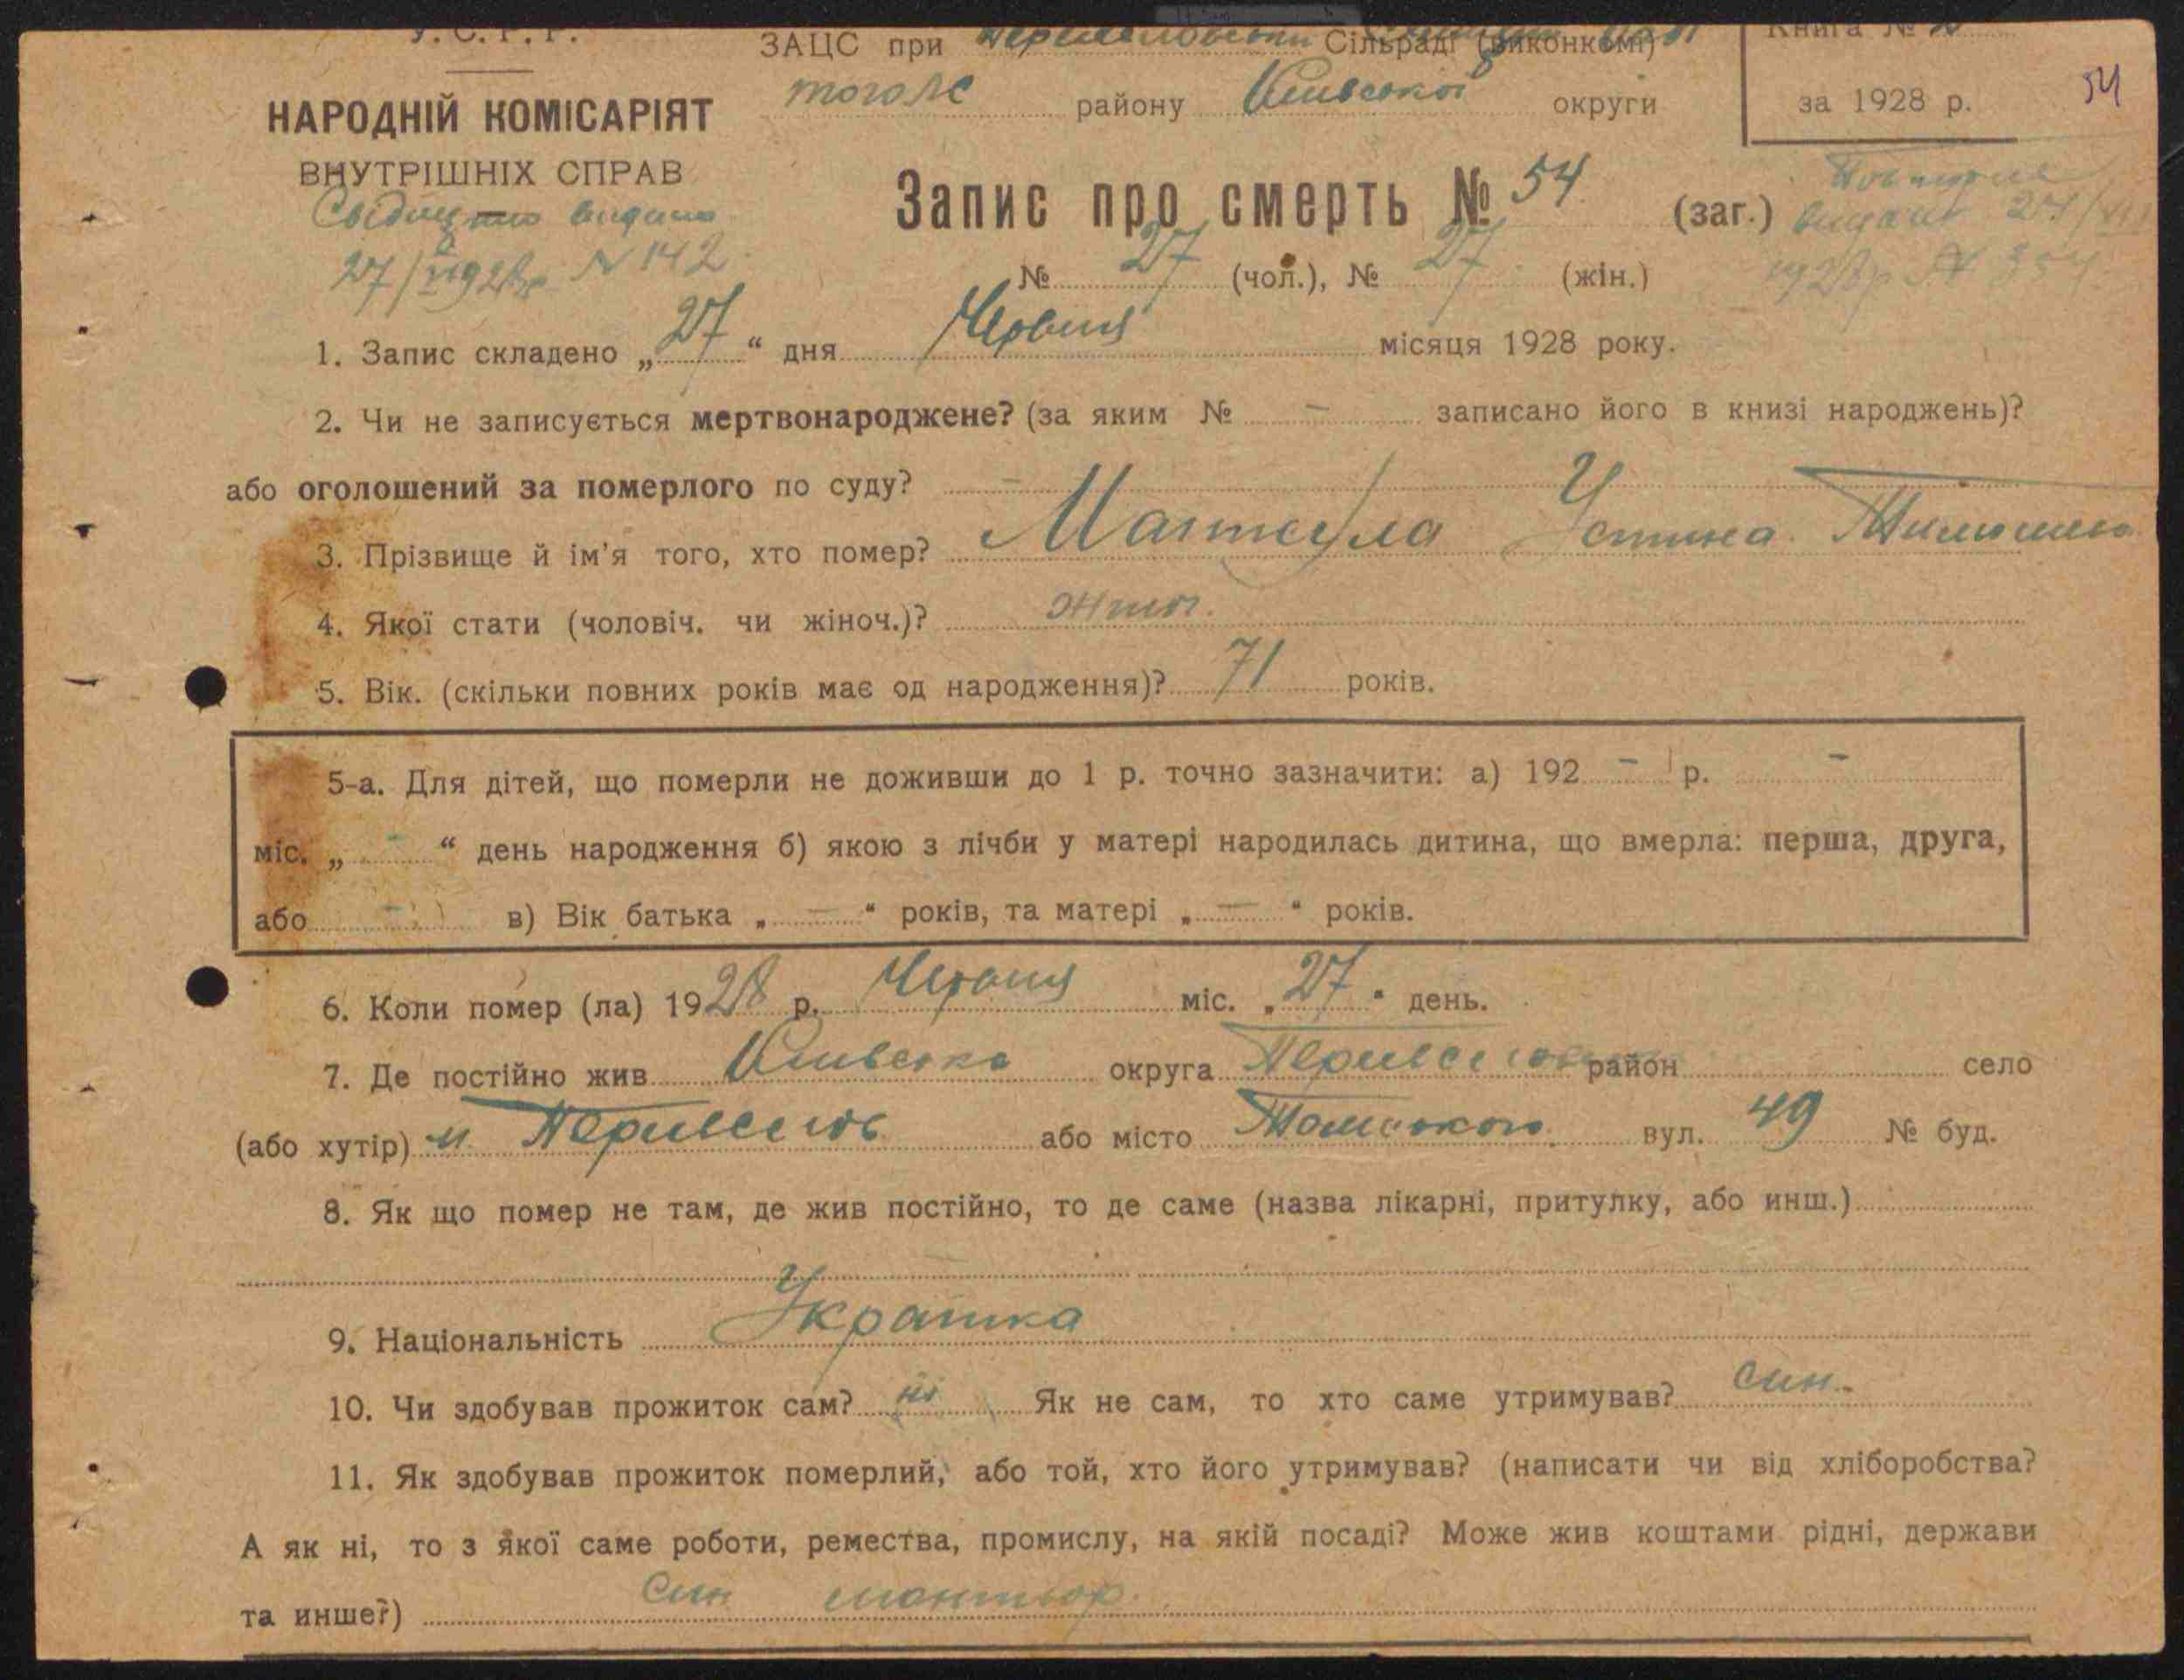 У.С.Р.Р.
ЗАЦС при Сільраді (виконкомі)
Книга №
тогож району Київської округи
за 1928 р. 54
НАРОДНІЙ КОМІСАРІЯТ
ВНУТРІШНІХ СПРАВ
Запис про смерть № 54 (заг.)
Свідоцтво видано
27/VI 1928р. N 142
Повторне
видано 27/VII
1928р N
№ 27 (чол.), № 27 (жін.)
1. Запис складено „27“ дня Червня місяця 1928 року.
2. Чи не записується мертвонароджене? (за яким № - записано його в книзі народжень)?
або оголошений за померлого по суду? -
3. Прізвище й ім'я того, хто помер? Устина
4. Якої стати (чоловіч. чи жіноч.)? жіноч.
5. Вік. (скільки повних років має од народження)? 71 років.
5-а. Для дітей, що померли не доживши до 1 р. точно зазначити: а) 192 - р. -
міс. „ - “ день народження б) якою з лічби у матері народилась дитина, що вмерла: перша, друга,
або - в) Вік батька „ — “ років, та матері „ — “ років.
6. Коли помер (ла) 1928 р. Червня міс. „27“ день.
7. Де постійно жив Київська округа Переясловс район село
(або хутір) м. Переяслов або місто вул. 49 № буд.
8. Як що помер не там, де жив постійно, то де саме (назва лікарні, притулку, або инш.)
9. Національність Українка
10. Чи здобував прожиток сам? ні Як не сам, то хто саме утримував? син.
11. Як здобував прожиток померлий, або той, хто його утримував? (написати чи від хліборобства?
А як ні, то з якої саме роботи, ремества, промислу, на якій посаді? Може жив коштами рідні, держави
та инше?) Син монтьор.